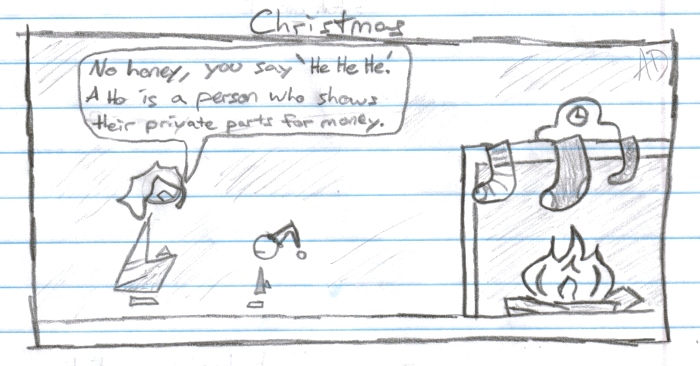 Christmas
AD
No honey, you say 'He He He.'
A Ho is a person who shows
their private parts for money.